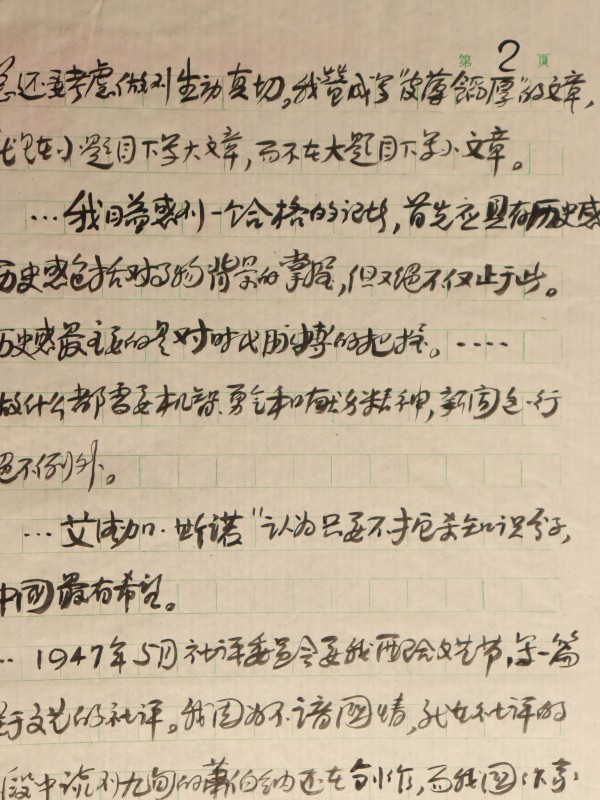 第2页
还要考虑做到生动真切。我赞成写“皮薄馅厚”的文章，
在小题目下写大文章，而不在大题目下写小文章。
…我日益感到一个合格的记者，首先应具有历史感
历史感包括对事物背景的掌握，但又绝不仅止于此。
历史感最主要的是对时代脉搏的把握。····
做什么都需要机智、勇气和献身精神，新闻这一行
绝不例外。
…艾德加·斯诺“认为只要不扼杀知识分子，
中国最有希望。
‥1947年5月社评委员会要我配合文艺节，写一篇
关于文艺的社评。我因为不谙国情，就在社评的
段中谈到九旬的萧伯纳还在创作，而我国作家